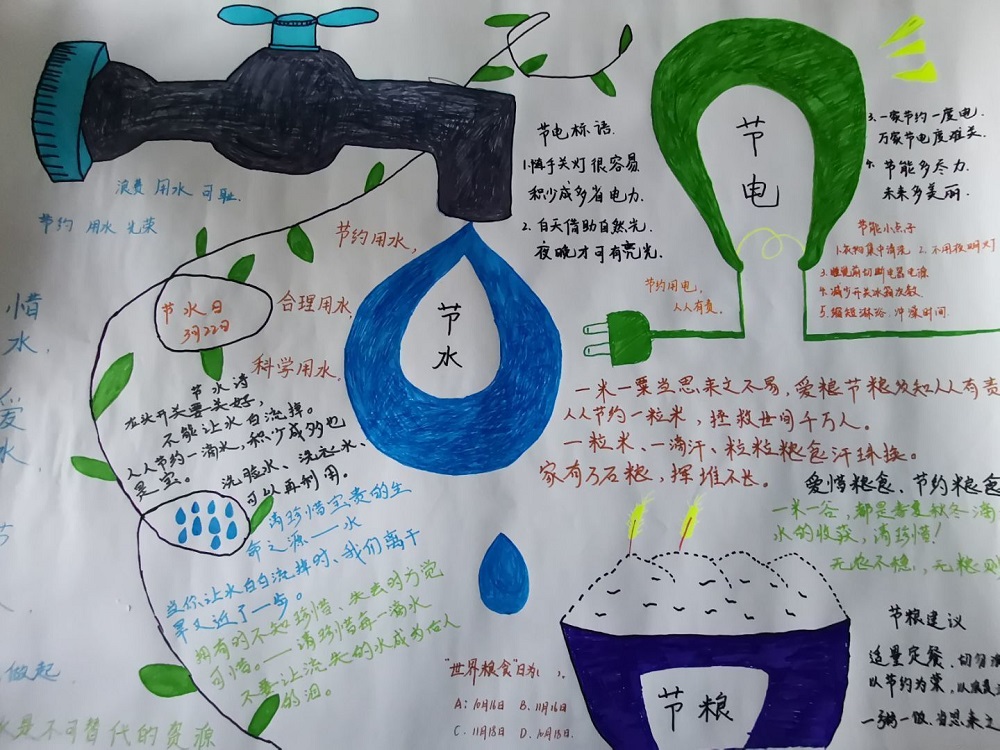 浪费 用水 可耻.
节约 用水 光荣
惜
水.
爱
水.
节
做起
水是不可替代的资源
节水日
3月22日
节约用水,
合理用水,
科学用水,
节水
节水诗
龙头开关要关好,
不能让水白流掉。
人人节约一滴水,积少成多也
是宝。
洗脸水、洗衣水、
可以再利用。
请珍惜宝贵的生
命之源——水
当你让水白白流掉时、我们离干
旱又近了一步。
拥有时不知珍惜、失去时方觉
可惜。——请珍惜每一滴水
不要让流失的水成为后人
的泪。
节电标语.
1.随手关灯很容易
积少成多省电力.
2. 白天借助自然光.
夜晚才可有亮光.
节电
3. 一家节约一度电.
万家节电度难关.
4. 节能多尽力.
未来多美丽.
节能小点子
1.衣物集中清洗 2. 不用夜明灯
3.睡觉前切断电器电源
4.减少开关冰箱次数.
5.缩短淋浴.冲澡时间.
节约用电,
人人有责.
一米一粟当思来之不易,爱粮节粮须知人人有责
人人节约一粒米,拯救世间千万人。
一粒米、一滴汗、粒粒粮食汗珠换。
家有万石粮,挥堆不长。
爱惜粮食、节约粮食
一米一谷,都是春夏秋冬滴
水的收获,请珍惜!
无农不稳,无粮则
节粮
节粮建议
适量定餐,切勿浪
以节约为荣,以浪费
一粥一饭.当思来之
"世界粮食"日为( ).
A:10月16日 B、11月16日
C、11月18日 D、10月18日.